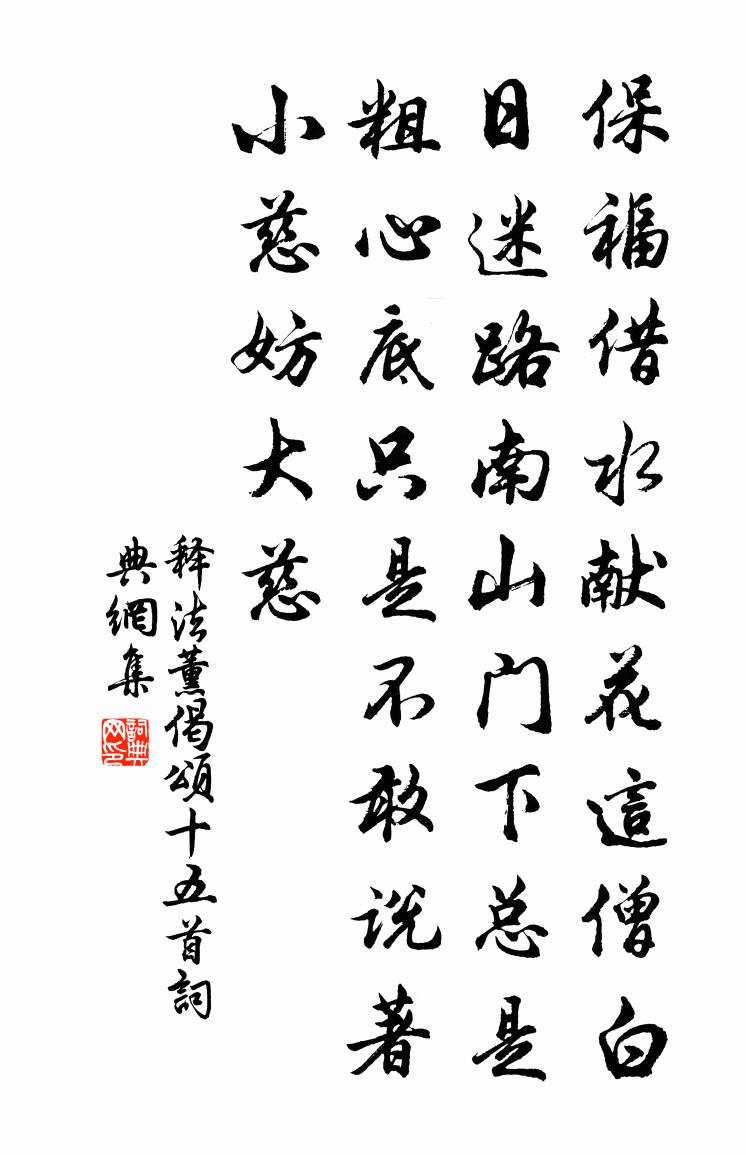 保福借水献花這僧白
日迷路南山门下总是
粗心底只是不敢说著
小慈妨大慈
释法薰偈頌十五首詞
典網集
詞典网印